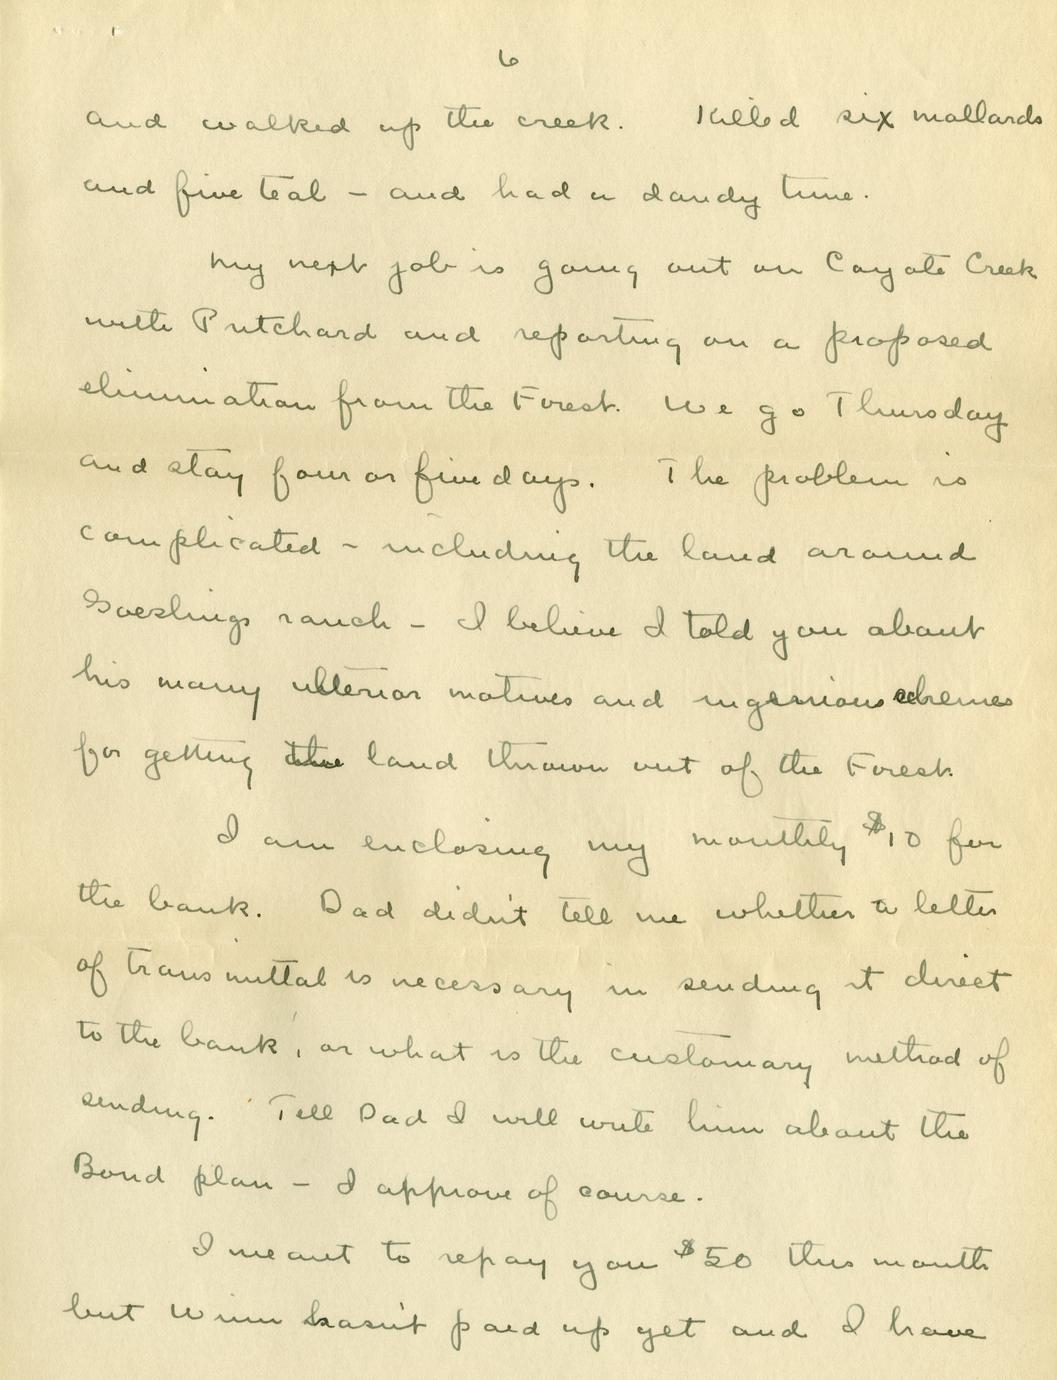 6
and walked up the creek. Killed six mallards
and five teal - and had a dandy time.
My next job is going out on Coyote Creek
with Pritchard and reporting on a proposed
elimination from the Forest. We go Thursday
and stay four or five days. The problem is
complicated - including the land around
Goeslings ranch - I believe I told you about
his many ulterior motives and ingenious schemes
for getting the land thrown out of the Forest.
I am enclosing my monthly $10 for
the bank. Dad didn't tell me whether a letter
of transmittal is necessary in sending it direct
to the bank, or what is the customary method of
sending. Tell Dad I will write him about the
Bond plan - I approve of course.
I meant to repay you $50 this month
but Winn hasn't paid up yet and I have